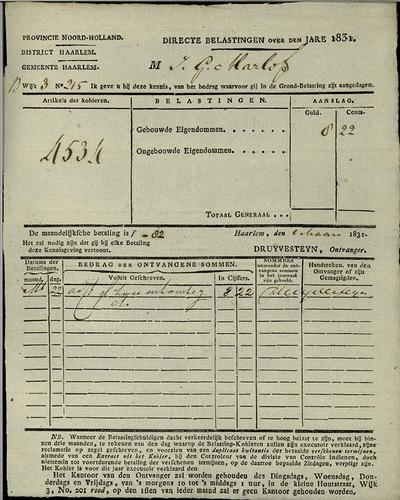 PROVINCIE NOORD-HOLLAND.
DISTRICT HAARLEM.
GEMEENTE HAARLEM.
DIRECTE BELASTINGEN OVER DEN JARE 1831.
M J. G. Marlof
Wijk 3 No. 215 Ik geve u bij deze kennis, van het bedrag waarvoor gij in de Grond-Belasting zijt aangeslagen.
Artikels der kohieren.
BELASTINGEN.
AANSLAG.
Guld. Cents.
4534
Gebouwde Eigendommen. . . . . . . 8 22
Ongebouwde Eigendommen. . . . . .
TOTAAL GENERAAL . . .
De maandelijksche betaling is f - 82
Haarlem, den 1831.
Het zal nodig zijn dat gij bij elke Betaling
deze Kennisgeving vertoont.
DRUYVESTEYN, Ontvanger.
Datums der Betalingen.
maand. dag.
BEDRAG DER ONTVANGENE SOMMEN.
Voluit Geschreven. In Cijffers.
NOMMERS waaronder de ontvangene sommen in het journaal zijn geboekt.
Handteeken. van den Ontvanger of zijn Gemagtigden.
22 acht gl twee en twintig 8 22
NB. Wanneer de Belastingschuldigen dacht verkeerdelijk beschreven of te hoog belast te zijn, moet hij binnen
drie maanden, te rekenen van den dag waarop de Belasting-Kohieren zullen zijn executoir verklaard, zijne
reclamatie op zegel geschreven, en voorzien van een duplicaat kwitantie der betaalde verschenen termijnen,
alsmede van een Extract uit het Kohier, bij den Controleur van de divisie van Contrôle indienen, doch
niettemin tot voortdurende betaling der verschenen termijnen, op de daartoe bepaalde Zitdagen, verpligt zijn.
Het Kohier is voor dit jaar executoir verklaard den
Het Kantoor van den Ontvanger zal worden gehouden des Dingsdag, Woensdag, Donderdag
en Vrijdag, van 's morgens 10 tot 's middags 1 uur, in de kleine Houtstraat, Wijk
3, No. 201 rood, op den isten van ieder maand zal er geen Kantoor gehouden worden.